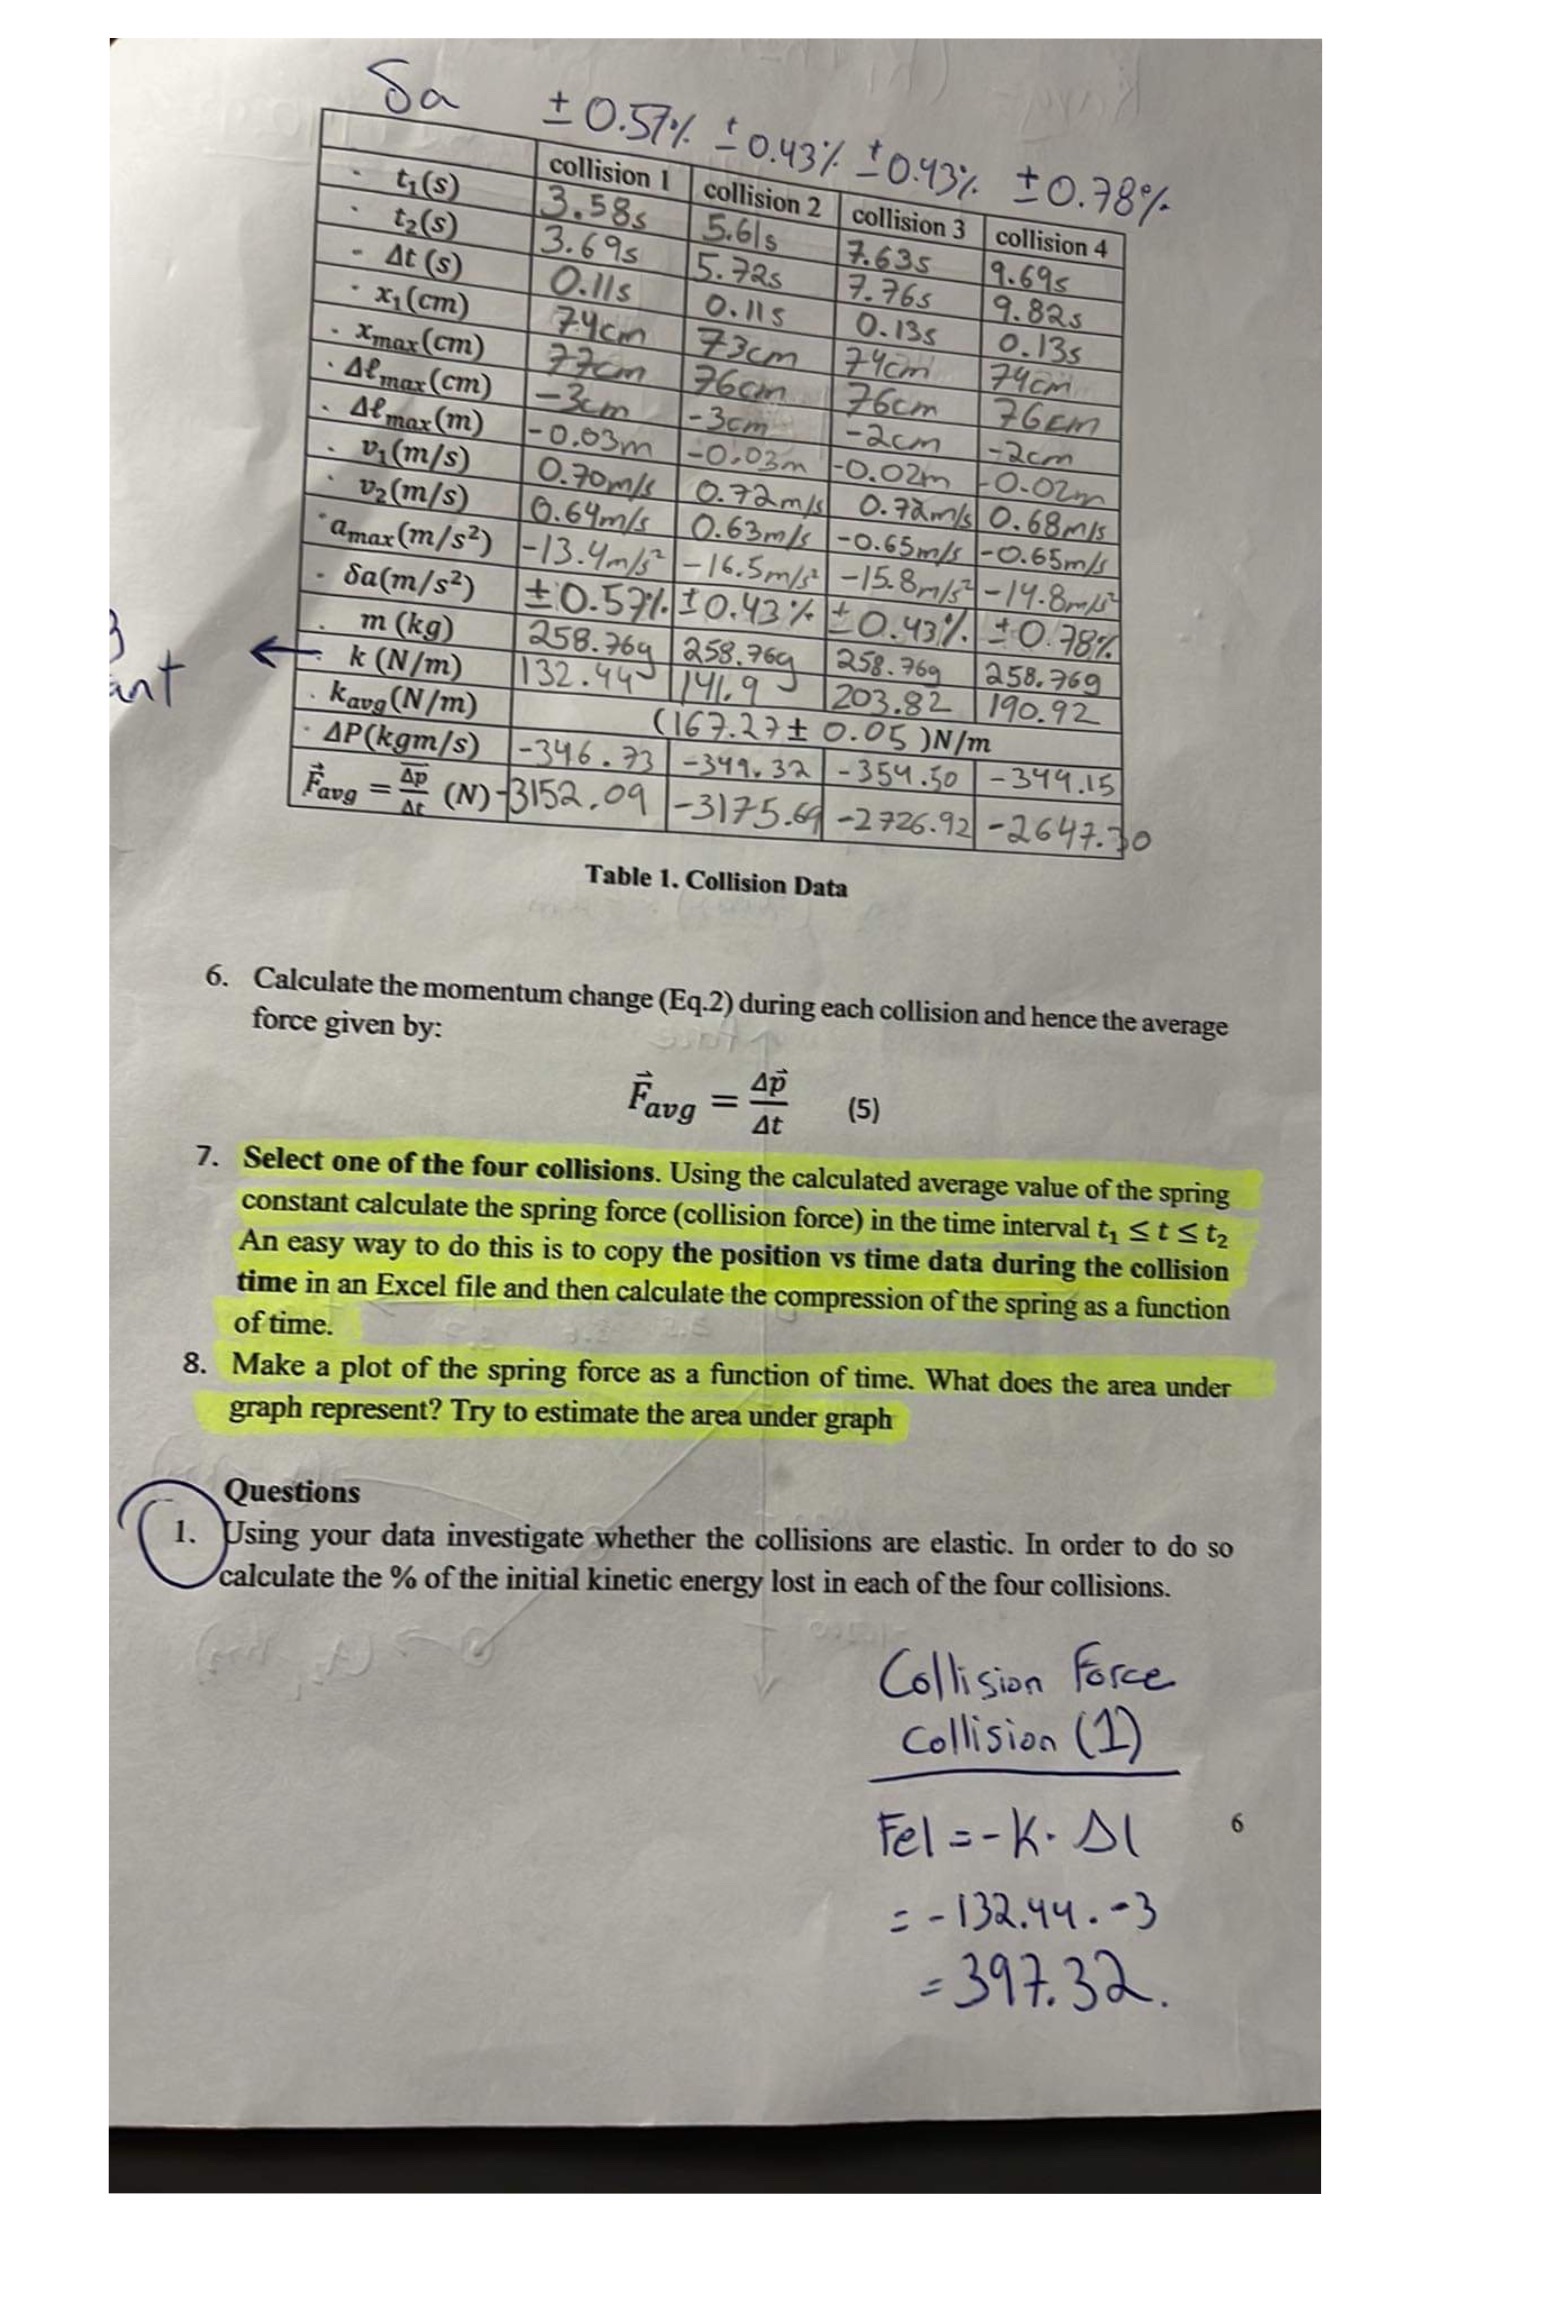 δa ±0.57% ±0.43% ±0.43% ±0.78%
collision 1 collision 2 collision 3 collision 4
t₁(s) 3.58s 5.61s 7.63s 9.69s
t₂(s) 3.69s 5.72s 7.76s 9.82s
Δt (s) 0.11s 0.11s 0.13s 0.13s
x₁(cm) 74cm 73cm 74cm 74cm
xmax(cm) 77cm 76cm 76cm 76cm
Δℓmax(cm) -3cm -3cm -2cm -2cm
Δℓmax(m) -0.03m -0.03m -0.02m -0.02m
v₁(m/s) 0.70m/s 0.72m/s 0.72m/s 0.68m/s
v₂(m/s) 0.64m/s 0.63m/s -0.65m/s -0.65m/s
amax(m/s²) -13.4m/s² -16.5m/s² -15.8m/s² -14.8m/s²
δa(m/s²) ±0.57% ±0.43% ±0.43% ±0.78%
m (kg) 258.76g 258.76g 258.76g 258.76g
k (N/m) 132.44 141.9 203.82 190.92
kavg(N/m) (167.27 ± 0.05)N/m
ΔP(kgm/s) -346.73 -349.32 -354.50 -344.15
F⃗avg = Δp/Δt (N) -3152.09 -3175.64 -2726.92 -2647.30
Table 1. Collision Data
6. Calculate the momentum change (Eq.2) during each collision and hence the average
force given by:
F⃗avg = Δp⃗/Δt (5)
7. Select one of the four collisions. Using the calculated average value of the spring
constant calculate the spring force (collision force) in the time interval t₁ ≤ t ≤ t₂
An easy way to do this is to copy the position vs time data during the collision
time in an Excel file and then calculate the compression of the spring as a function
of time.
8. Make a plot of the spring force as a function of time. What does the area under
graph represent? Try to estimate the area under graph
Questions
1. Using your data investigate whether the collisions are elastic. In order to do so
calculate the % of the initial kinetic energy lost in each of the four collisions.
Collision Force
Collision (1)
Fel = -K. Δl
= -132.44. -3
= 397.32.
6